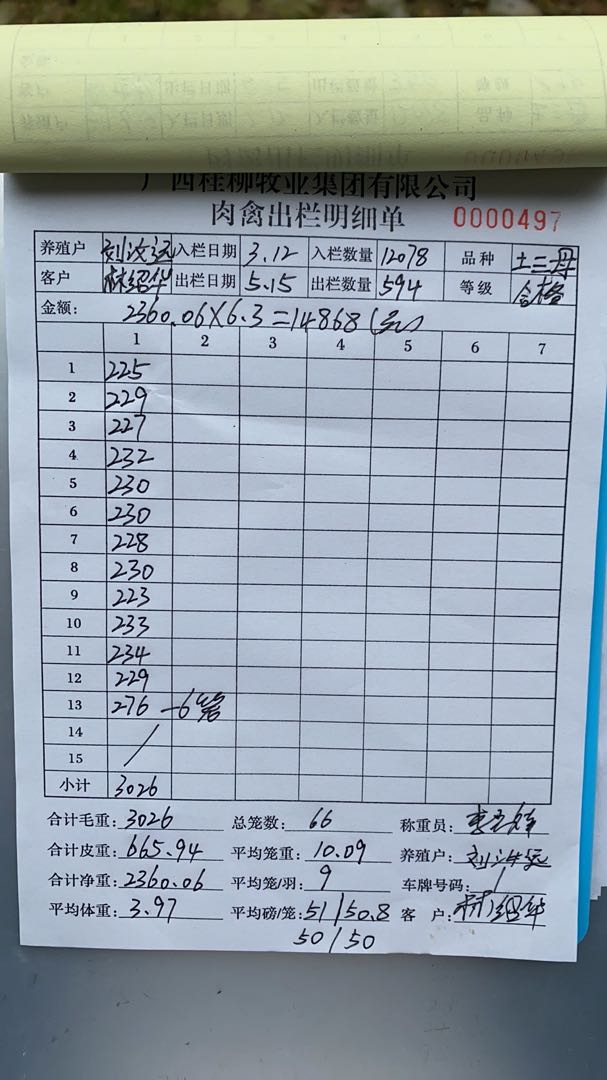 广西桂柳牧业集团有限公司
肉禽出栏明细单 0000497
养殖户 刘汝远 入栏日期 3.12 入栏数量 12078 品种 土三母
客户 林绍华 出栏日期 5.15 出栏数量 594 等级 合格
金额: 2360.06×6.3=14868(元)
1 2 3 4 5 6 7
1 225
2 229
3 227
4 232
5 230
6 230
7 228
8 230
9 223
10 233
11 234
12 229
13 276 —6笼
14
15
小计 3026
合计毛重: 3026 总笼数: 66 称重员:
合计皮重: 665.94 平均笼重: 10.09 养殖户: 刘汝远
合计净重: 2360.06 平均笼/羽: 9 车牌号码: /
平均体重: 3.97 平均磅/笼: 51/50.8 客 户: 林绍华
50/50